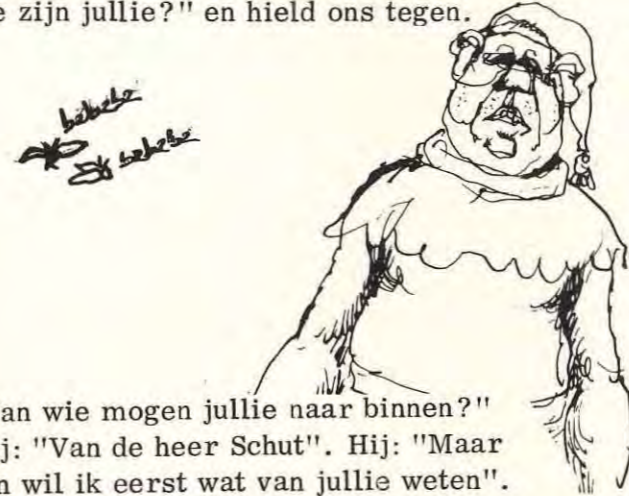 e zijn jullie?" en hield ons tegen.
bzbzbz
bzbzbz
an wie mogen jullie naar binnen?"
ij: "Van de heer Schut". Hij: "Maar
n wil ik eerst wat van jullie weten".